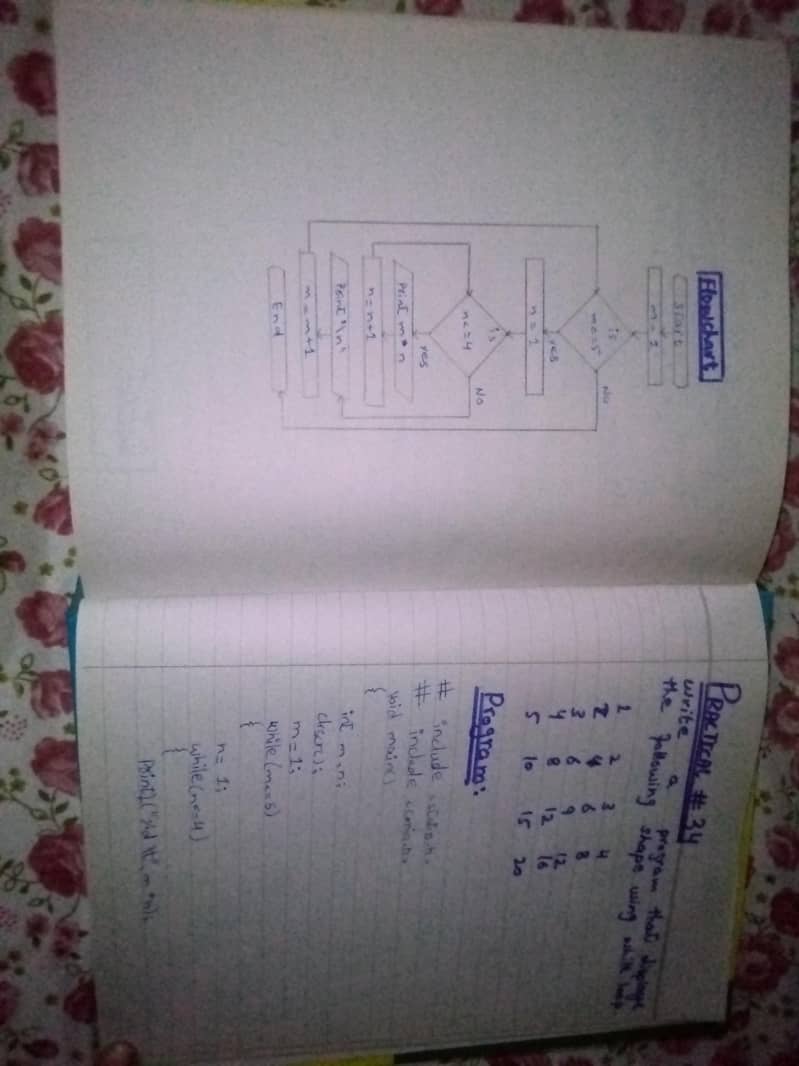 Flowchart
Start
m = 1
is
m<=5
No
yes
n = 1
is
n<=4
No
yes
Print m*n
n = n+1
Print "\n"
m = m+1
End
PRACTICAL # 34
write a program that displays
the following shape using while loop
1 2 3 4
2 4 6 8
3 6 9 12
4 8 12 16
5 10 15 20
Program:
# include <stdio.h>
# include <conio.h>
void main()
{
int m,n;
clrscr();
m = 1;
while(m<=5)
{
n = 1;
while(n<=4)
{
printf("%d \t", m*n);